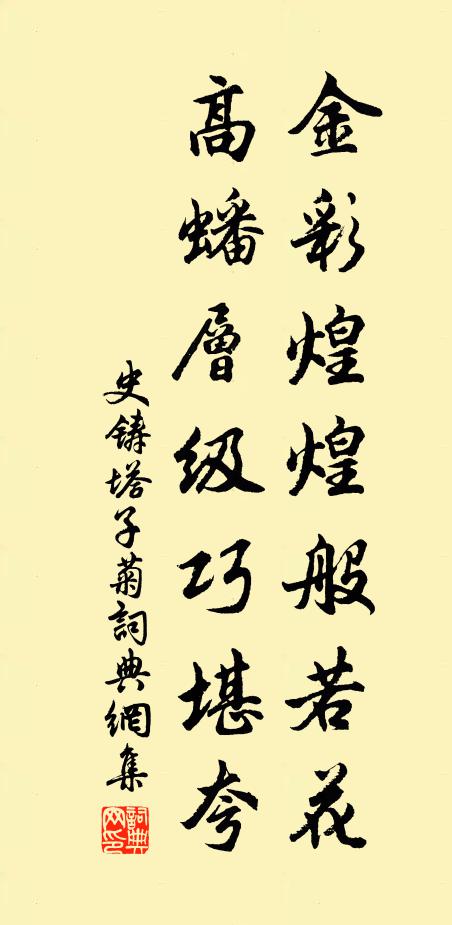 金彩煌煌般若花
高蟠層级巧堪夸
史鑄塔子菊詞典網集
詞典网印